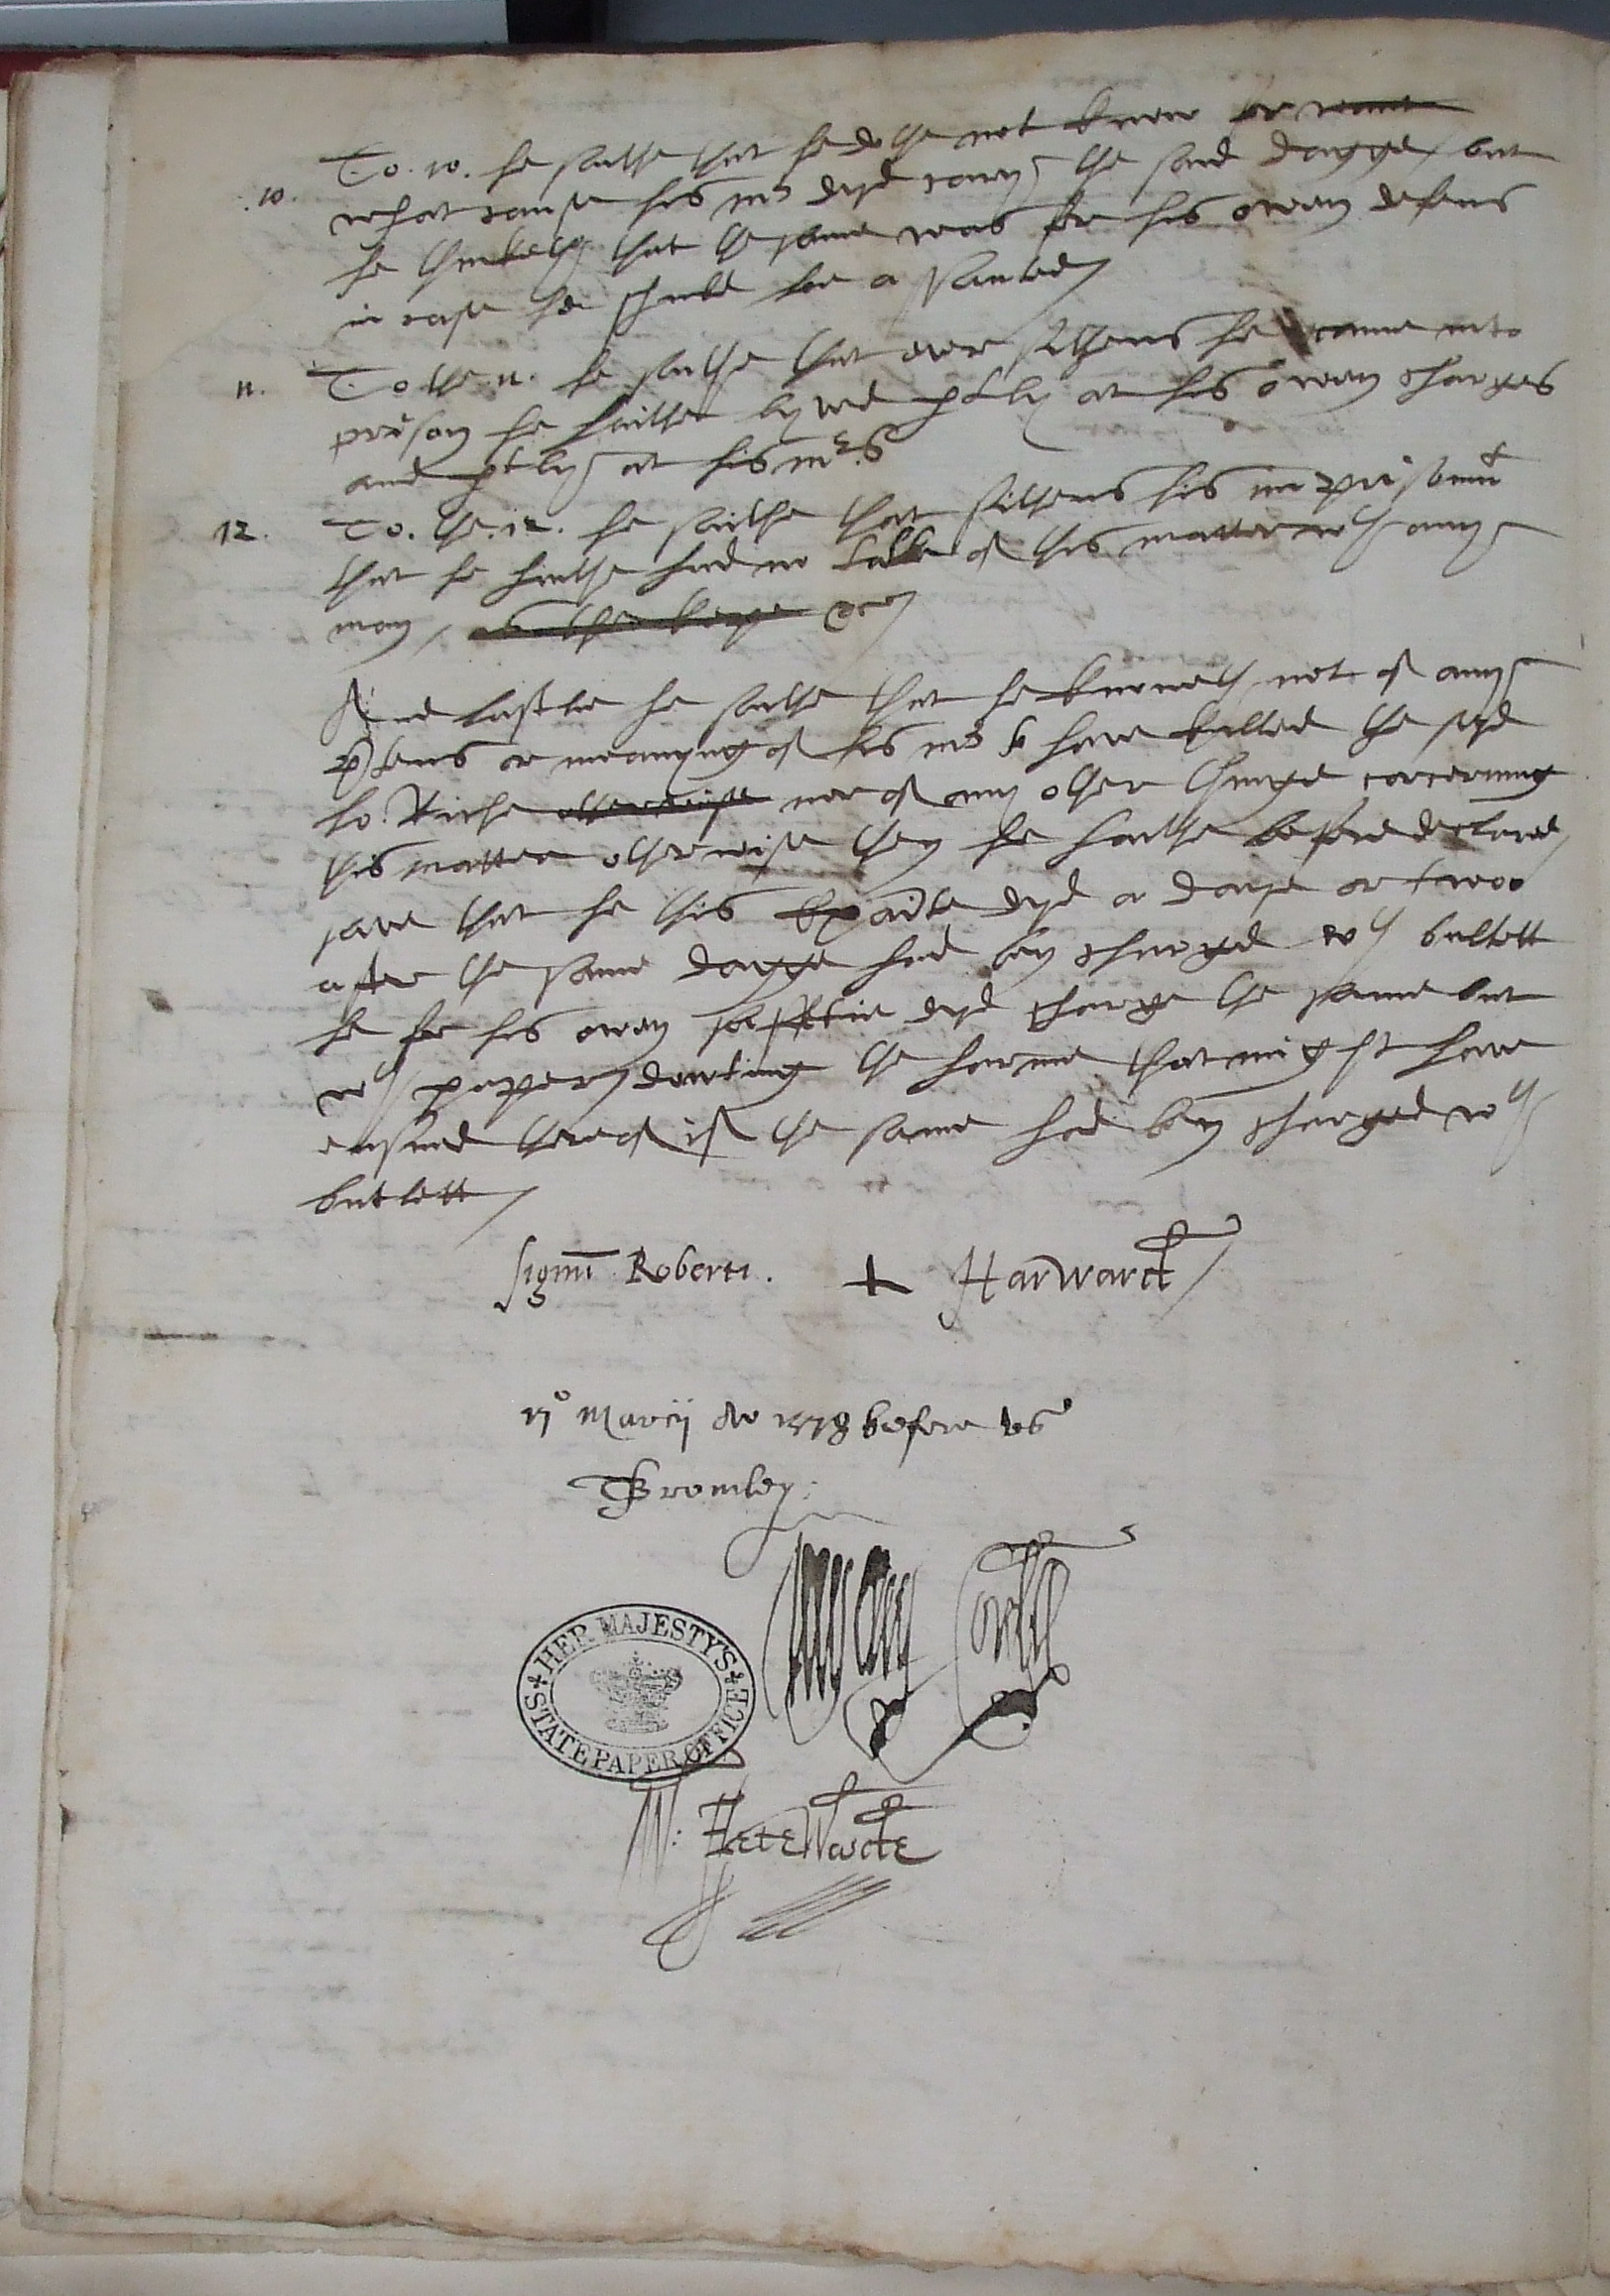 .10. To. 10. he saithe that he dothe not know for want
what cause his mr dyd cary the said dagge / but
he thinketh that the same was for his owen defens
in case he shuld be a saulted /
11. To the .11. he saithe that ever sithens he came into
prison he haithe lyved ptly at his owen charges
and ptly at his mrs
12. To. the .12. he saithe that sithens his imprisonmt
that he haithe had no talke of this matter wth any
man /
And lastlie he saithe that he knoweth not of any
ptens or meanyng of his mr to have killed the seyd
lo. Riche otherwise nor of any other thinge concerning
this matter otherwise then he haithe before declared /
save that he this Exaite dyd a daye or twoo
after the same dagge had ben charged wth bullett
he for his owen saffetie dyd charge the same but
wth paper / dowting the harme that might have
ensued thereof if the same had ben charged wth
bullett /
signū Roberti. + Harward /
vjº Marcij Ao 1578 before us
T Bromley.
HER MAJESTY'S
STATE PAPER OFFICE
W: Fletewoode